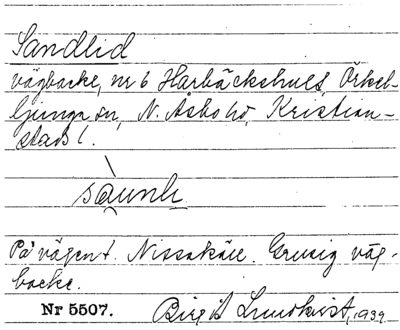 Sandlid
vägbacke, nr 6 Harbäckshult, Örkel-
ljunga sn, N. Åsbo hd, Kristian-
stads l.
På vägen t. Nissakäll. Grusig väg-
backe.
Nr 5507. Birgit Lundkvist, 1939